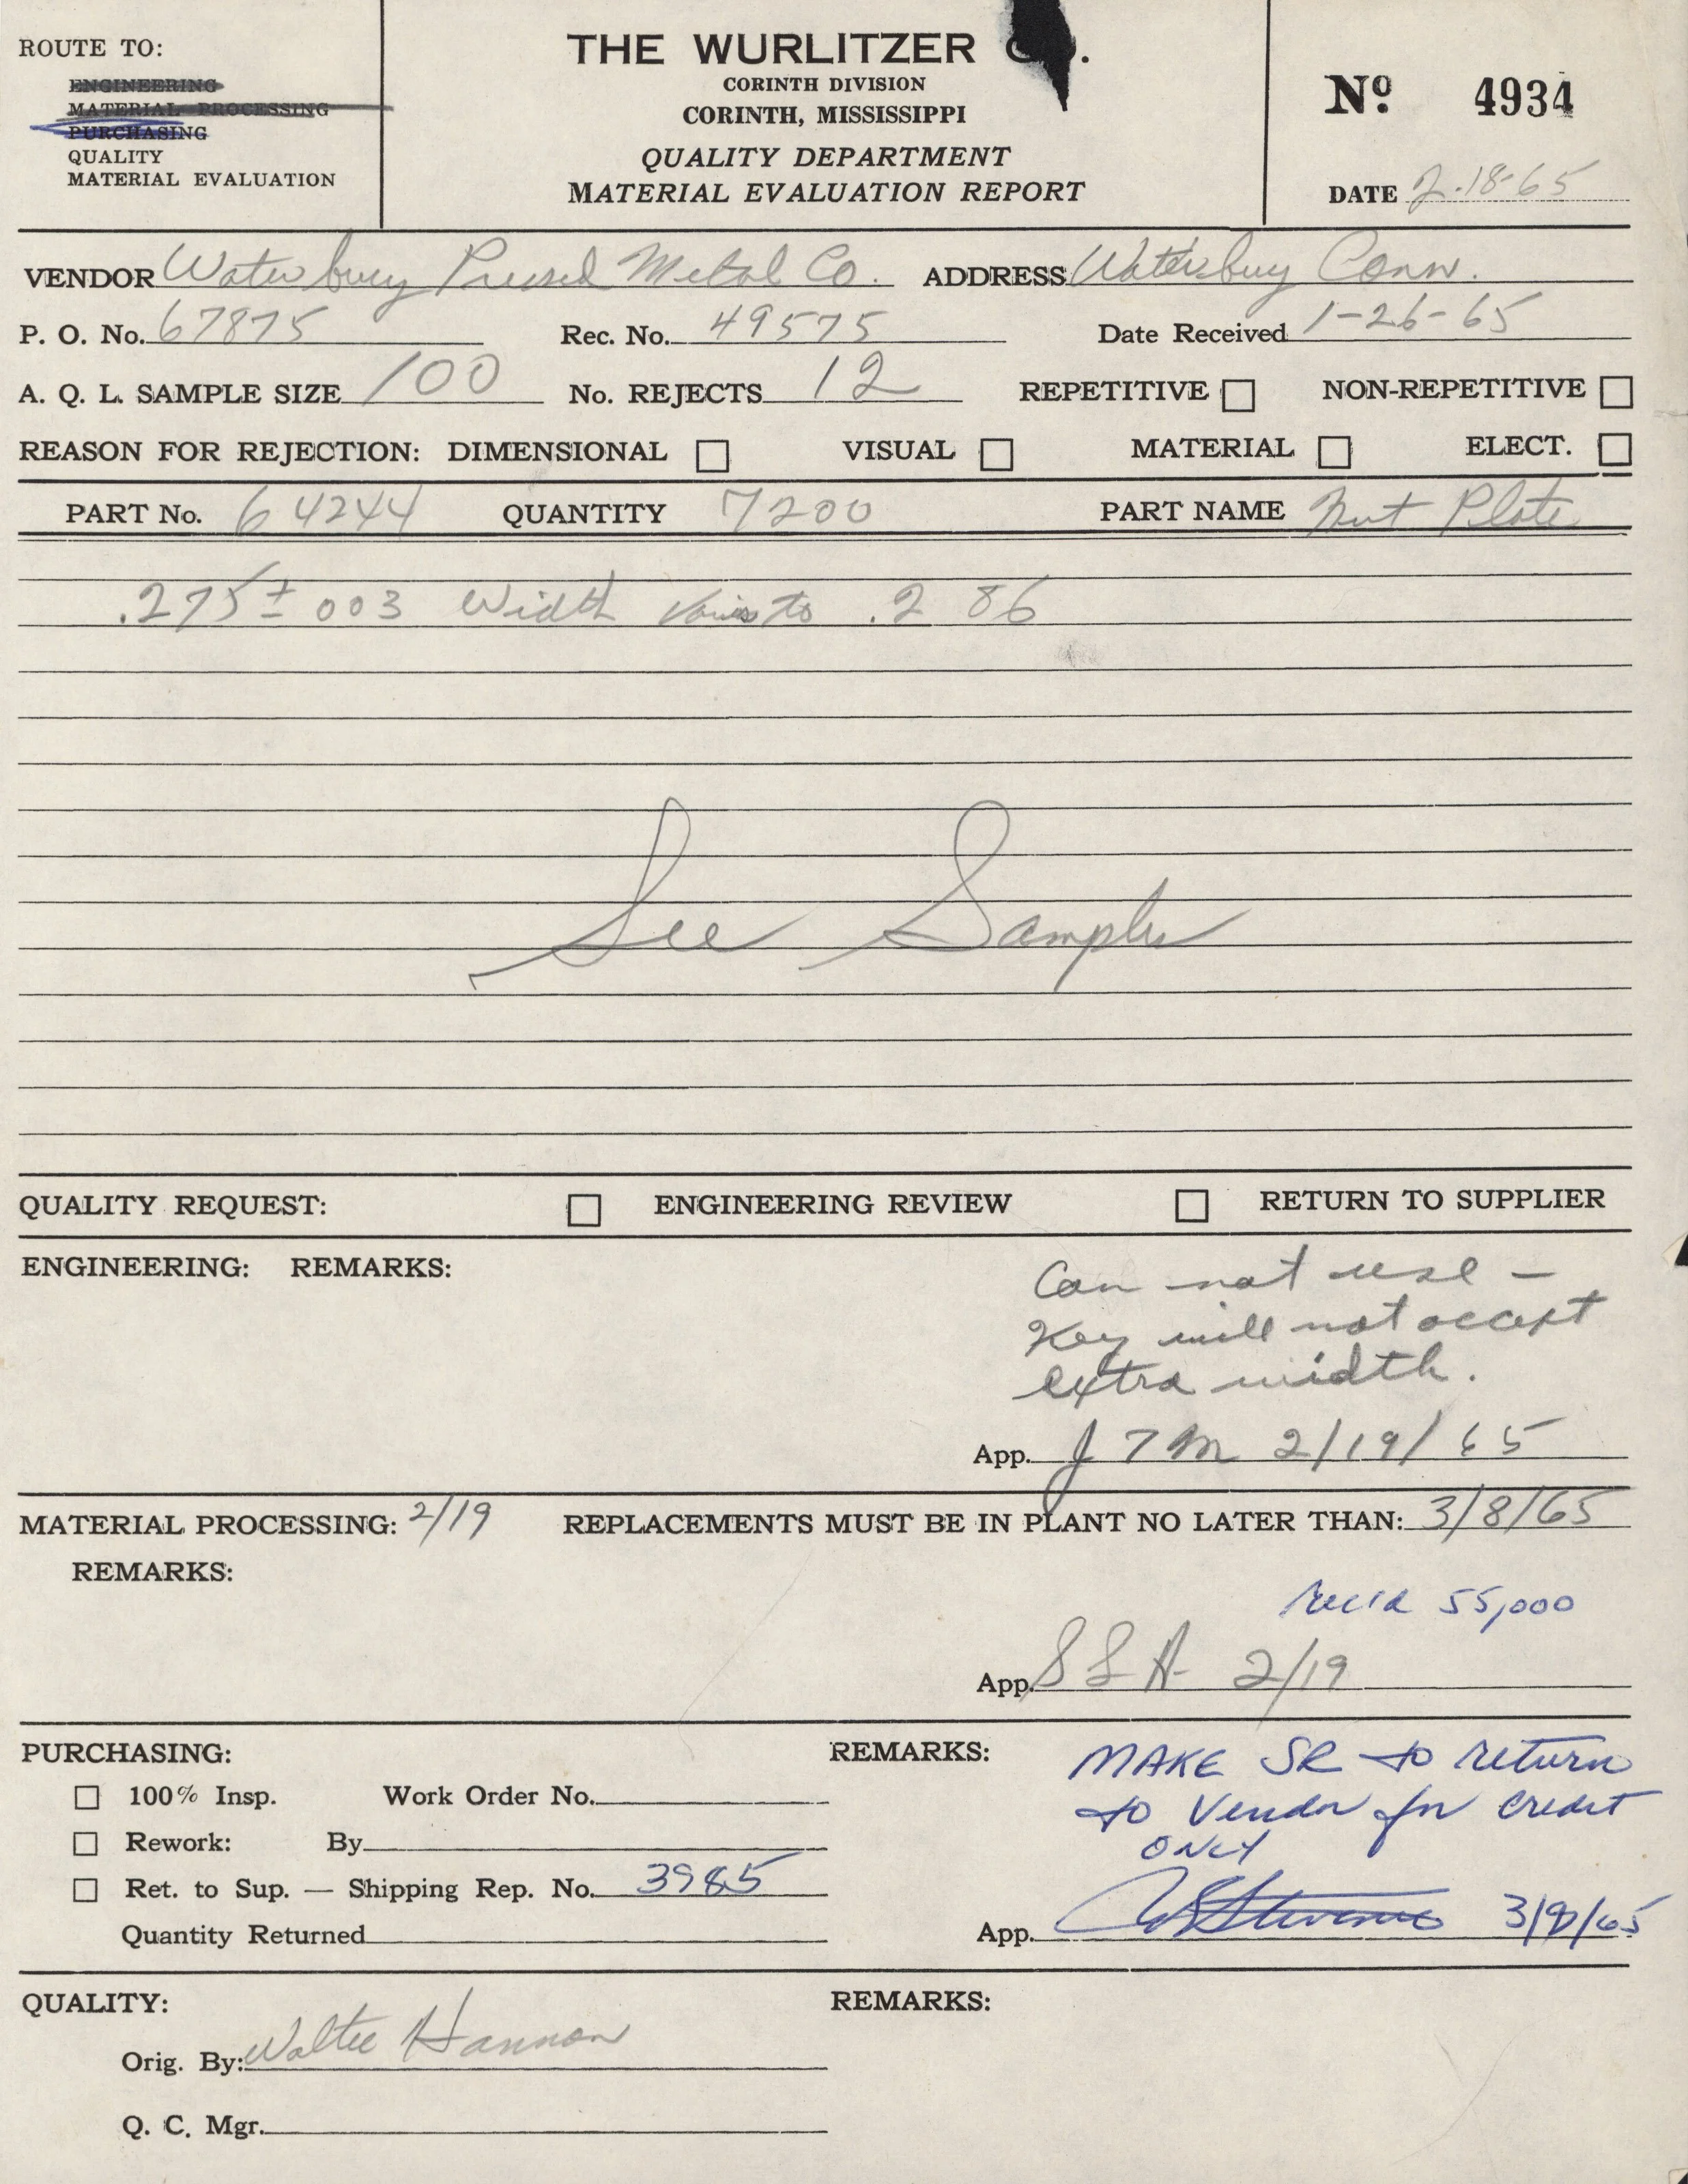 ROUTE TO:
ENGINEERING
MATERIAL PROCESSING
PURCHASING
QUALITY
MATERIAL EVALUATION
THE WURLITZER CO.
CORINTH DIVISION
CORINTH, MISSISSIPPI
QUALITY DEPARTMENT
MATERIAL EVALUATION REPORT
Nº 4934
DATE 2-18-65
VENDOR Waterbury Pressed Metal Co. ADDRESS Waterbury Conn.
P. O. No. 67875 Rec. No. 49575 Date Received 1-26-65
A. Q. L. SAMPLE SIZE 100 No. REJECTS 12 REPETITIVE NON-REPETITIVE
REASON FOR REJECTION: DIMENSIONAL VISUAL MATERIAL ELECT.
PART No. 64244 QUANTITY 7200 PART NAME Nut Plate
.275 ± 003 Width varies to .286
See Samples
QUALITY REQUEST: ENGINEERING REVIEW RETURN TO SUPPLIER
ENGINEERING: REMARKS:
Can not use -
Key will not accept
extra width.
App. J T M 2/19/65
MATERIAL PROCESSING: 2/19 REPLACEMENTS MUST BE IN PLANT NO LATER THAN: 3/8/65
REMARKS:
Rec'd 55,000
App. S L A 2/19
PURCHASING: REMARKS:
MAKE SR to return
to Vendor for credit
ONLY
100% Insp. Work Order No.
Rework: By
Ret. to Sup. — Shipping Rep. No. 3985
Quantity Returned
App. Stevens 3/9/65
QUALITY: REMARKS:
Orig. By: Walter Hannon
Q. C. Mgr.